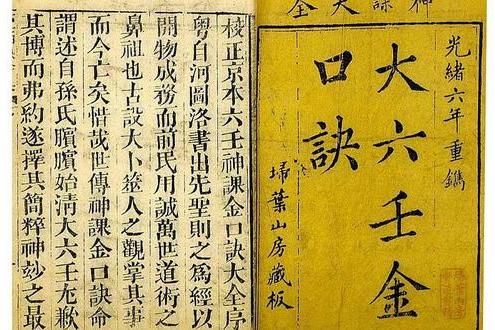 神課大全
光緒六年重鐫
大六壬金
口訣
埽葉山房藏板
校正京本六壬神課金口訣大全序
粵自河圖洛書出先聖則之為經以
開物成務而前民用誠萬世道術之
鼻祖也古設大卜筮人之觀掌其事
而今亡矣惜哉世傳神課金口訣命
謂述自孫氏臏臏始清大六壬尤歉
其博而弗約遂擇其簡粹神妙之最